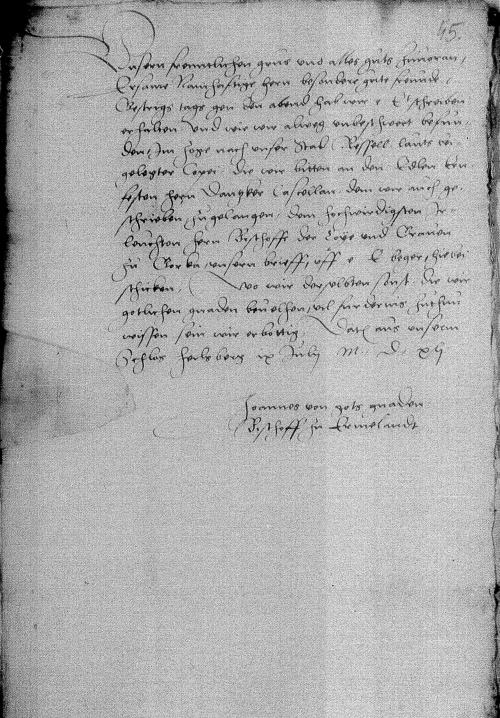 45.
Unsern freuntlichen grus und alles guts zuvoran
Ersame Namhaftige hern besondere gute freunde
Gestrigs tags gen den abend hab wir e. E. schreiben
erhalten und wie wir alweg unbeschwert befun-
den, Im fhage nach unser Stad Ressell lauts bei
gelegter Copei, die wir bitten an den Edlen Ern
festen hern Dantzker Castellan dem wir auch ge-
schrieben zugelangen, dem hochwirdigsten Er-
leuchten hern Bischoff der und
zu unsern brieff, uff e. E. beger, hiebei
schicken, wo wir derselbten sunst, die wir
gotlichen gnaden bevelhen, vil furderns zuthun
wissen sein wir erbottig. Dat. aus unserm
Schlos Heilsberg ix Julij M. D. xlj
Joannes von gots gnaden
Bischoff zu Ermelandt